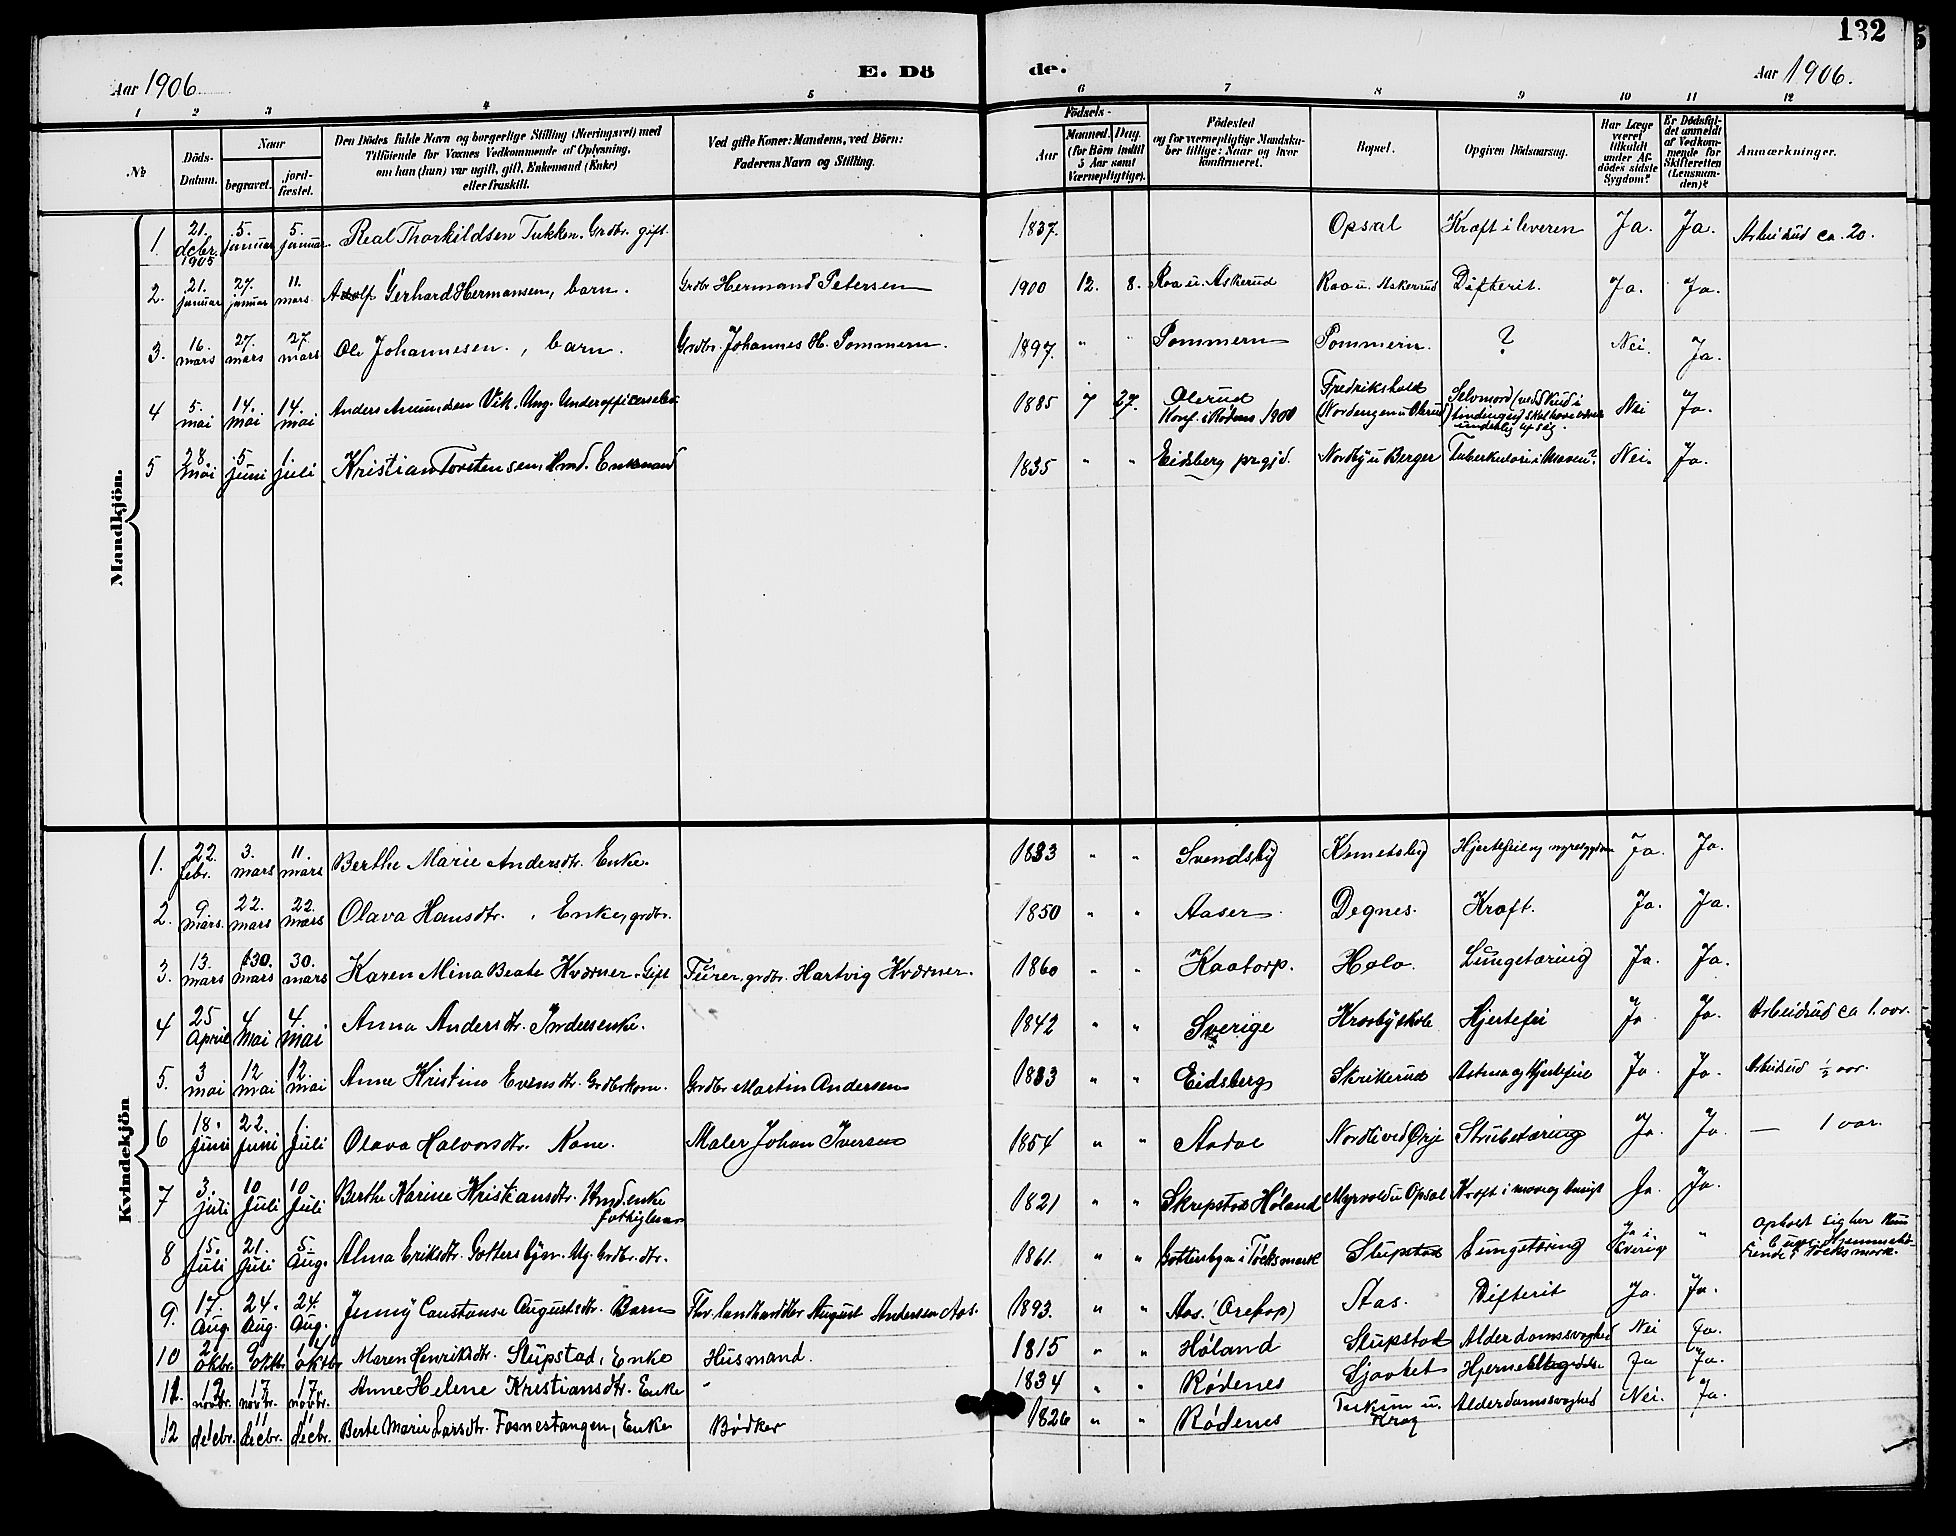 132
Aar 1906.
E. Dö de.
Aar 1906.
1 2 3 4 5 6 7 8 9 10 11 12
№
Döds-Datum.
Naar
begravet.
jord-fæstet.
Den Dödes fulde Navn og borgerlige Stilling (Næringsvei) med Tilföiende for Voxnes Vedkommende af Oplysning, om han (hun) var ugift, gift, Enkemand (Enke) eller fraskilt.
Ved gifte Koner: Mandens, ved Börn: Faderens Navn og Stilling.
Födsels-
Aar
Maaned. Dag.
(for Börn indtil 5 Aar samt Værnepligtige).
Födested og for værnepligtige Mandskaber tillige: Naar og hvor konfirmeret.
Bopæl.
Opgiven Dödsaarsag.
Har Læge været tilkaldt under Afdödes sidste Sygdom?
Er Dödsfaldet anmeldt af Vedkommende for Skifteretten (Lensmanden)?
Anmærkninger.
Mandkjön.
1. 21. decbr. 1905 5. januar 5. januar. Real Thorkildsen Tukken. Grdbr. gift. 1837. Opsal Kræft i leveren Ja. Ja. Arbeidsud ca. 20.
2. 21. januar 27. januar 11. mars Adolf Gerhard Hermansen, barn. Grdbr. Hermand Petersen 1900 12. 8. Raa u. Askerud Raa u. Askerud Difterit. Ja. Ja.
3. 16. mars 27. mars 27. mars Ole Johannesen, barn. Grdbr. Johannes H. Pommern. 1897. " " Pommern Pommern. ? Nei. Ja.
4 5. mai 14. mai 14. mai Anders Amundsen Vik. Ung. Underofficerselev 1885 7 27. Olerud Konf. i Rödenes 1900 Fredrikshald (Nordengen u Olerud) Selvmord (ved skud i tindingen) Nei Ja.
5 28. mai 5. juni 1. juli Kristian Torstensen, Hmd. Enkemand 1835 " " Eidsberg prgjd. Nordby u Berger Tuberkulose i Maven? Nei. Ja.
Kvindekjön
1. 22. febr. 3. mars 11. mars Berthe Marie Andersdtr. Enke. 1833 " " Svendsby Kometsby Hjertefeil og nyresygdom Ja. Ja.
2. 9 mars. 22. mars 22. mars Olava Hansdtr., Enke, grdbr. 1850 " " Aaser Degnes. Kræft. Ja. Ja.
3. 13. mars 30. mars 30. mars Karen Mina Beate Kværner. Gift Furer, grdbr. Hartvig Kværner. 1860 " " Kaatorp. Holo. Lungetæring Ja. Ja.
4 25 April 4 Mai 4. Mai Anna Andersdtr. Inderstenke. 1842 " " Sverige Krosby skole Hjertefeil Ja Ja. Arbeidsud ca 1. aar.
5. 3 mai 12 mai 12. mai Anne Kristine Evensdtr. Grdbrkone. Grdbr Martin Andersen 1833 " " Eidsberg Skrikerud Astma og Hjertefeil Ja. Ja. Arbeidsud ½ aar.
6 18. Juni 22. Juni 1. Juli Olava Halvorsdtr. Kone. Maler Johan Iversen 1854 " " Aadal Nordli ved Ørje Strubetæring Ja. Ja. — 1 aar.
7 3. juli 10 Juli 10 Juli Berthe Karine Kristiansdtr. Hmd.enke fattiglem 1821 " " Skrepstad Høland Myrvold u Opsal Kræft i mave og Ansigt Ja. Ja.
8 15. Juli 21. Juli 5. Aug. Alma Eriksdtr. Gottersbyn. Ug. Grdbr. dtr. 1861. " " Gottersbyn i Töcksmark Slupstad Lungetæring Ja i Sverige " opholdt sig her kun Töcksmark.
9. 17. Aug. 24. Aug. 24. Aug. Jenny Constanse Augustsdtr. Barn Fhv. landhandler August Andersen Aas. 1893. " " Aas. (Orekop) Aas. Difterit Ja. Ja.
10 2. oktbr. 9. oktbr. 14 oktbr Maren Henriksdtr. Slupstad, Enke Husmand. 1815 " " Høland Slupstad Alderdomssvaghed Nei Ja.
11. 12 novbr. 17 novbr. 17. novbr. Anne Helene Kristiansdtr. Enke " 1834 " " Rødenes Sjøvtet Ja Ja.
12 decbr. 11 decbr. decbr. Berte Marie Larsdtr. Fosnestangen, Enke Bødker 1826 " " Rødenes Tukun u. Krog Alderdomssvaghed Nei. Ja.